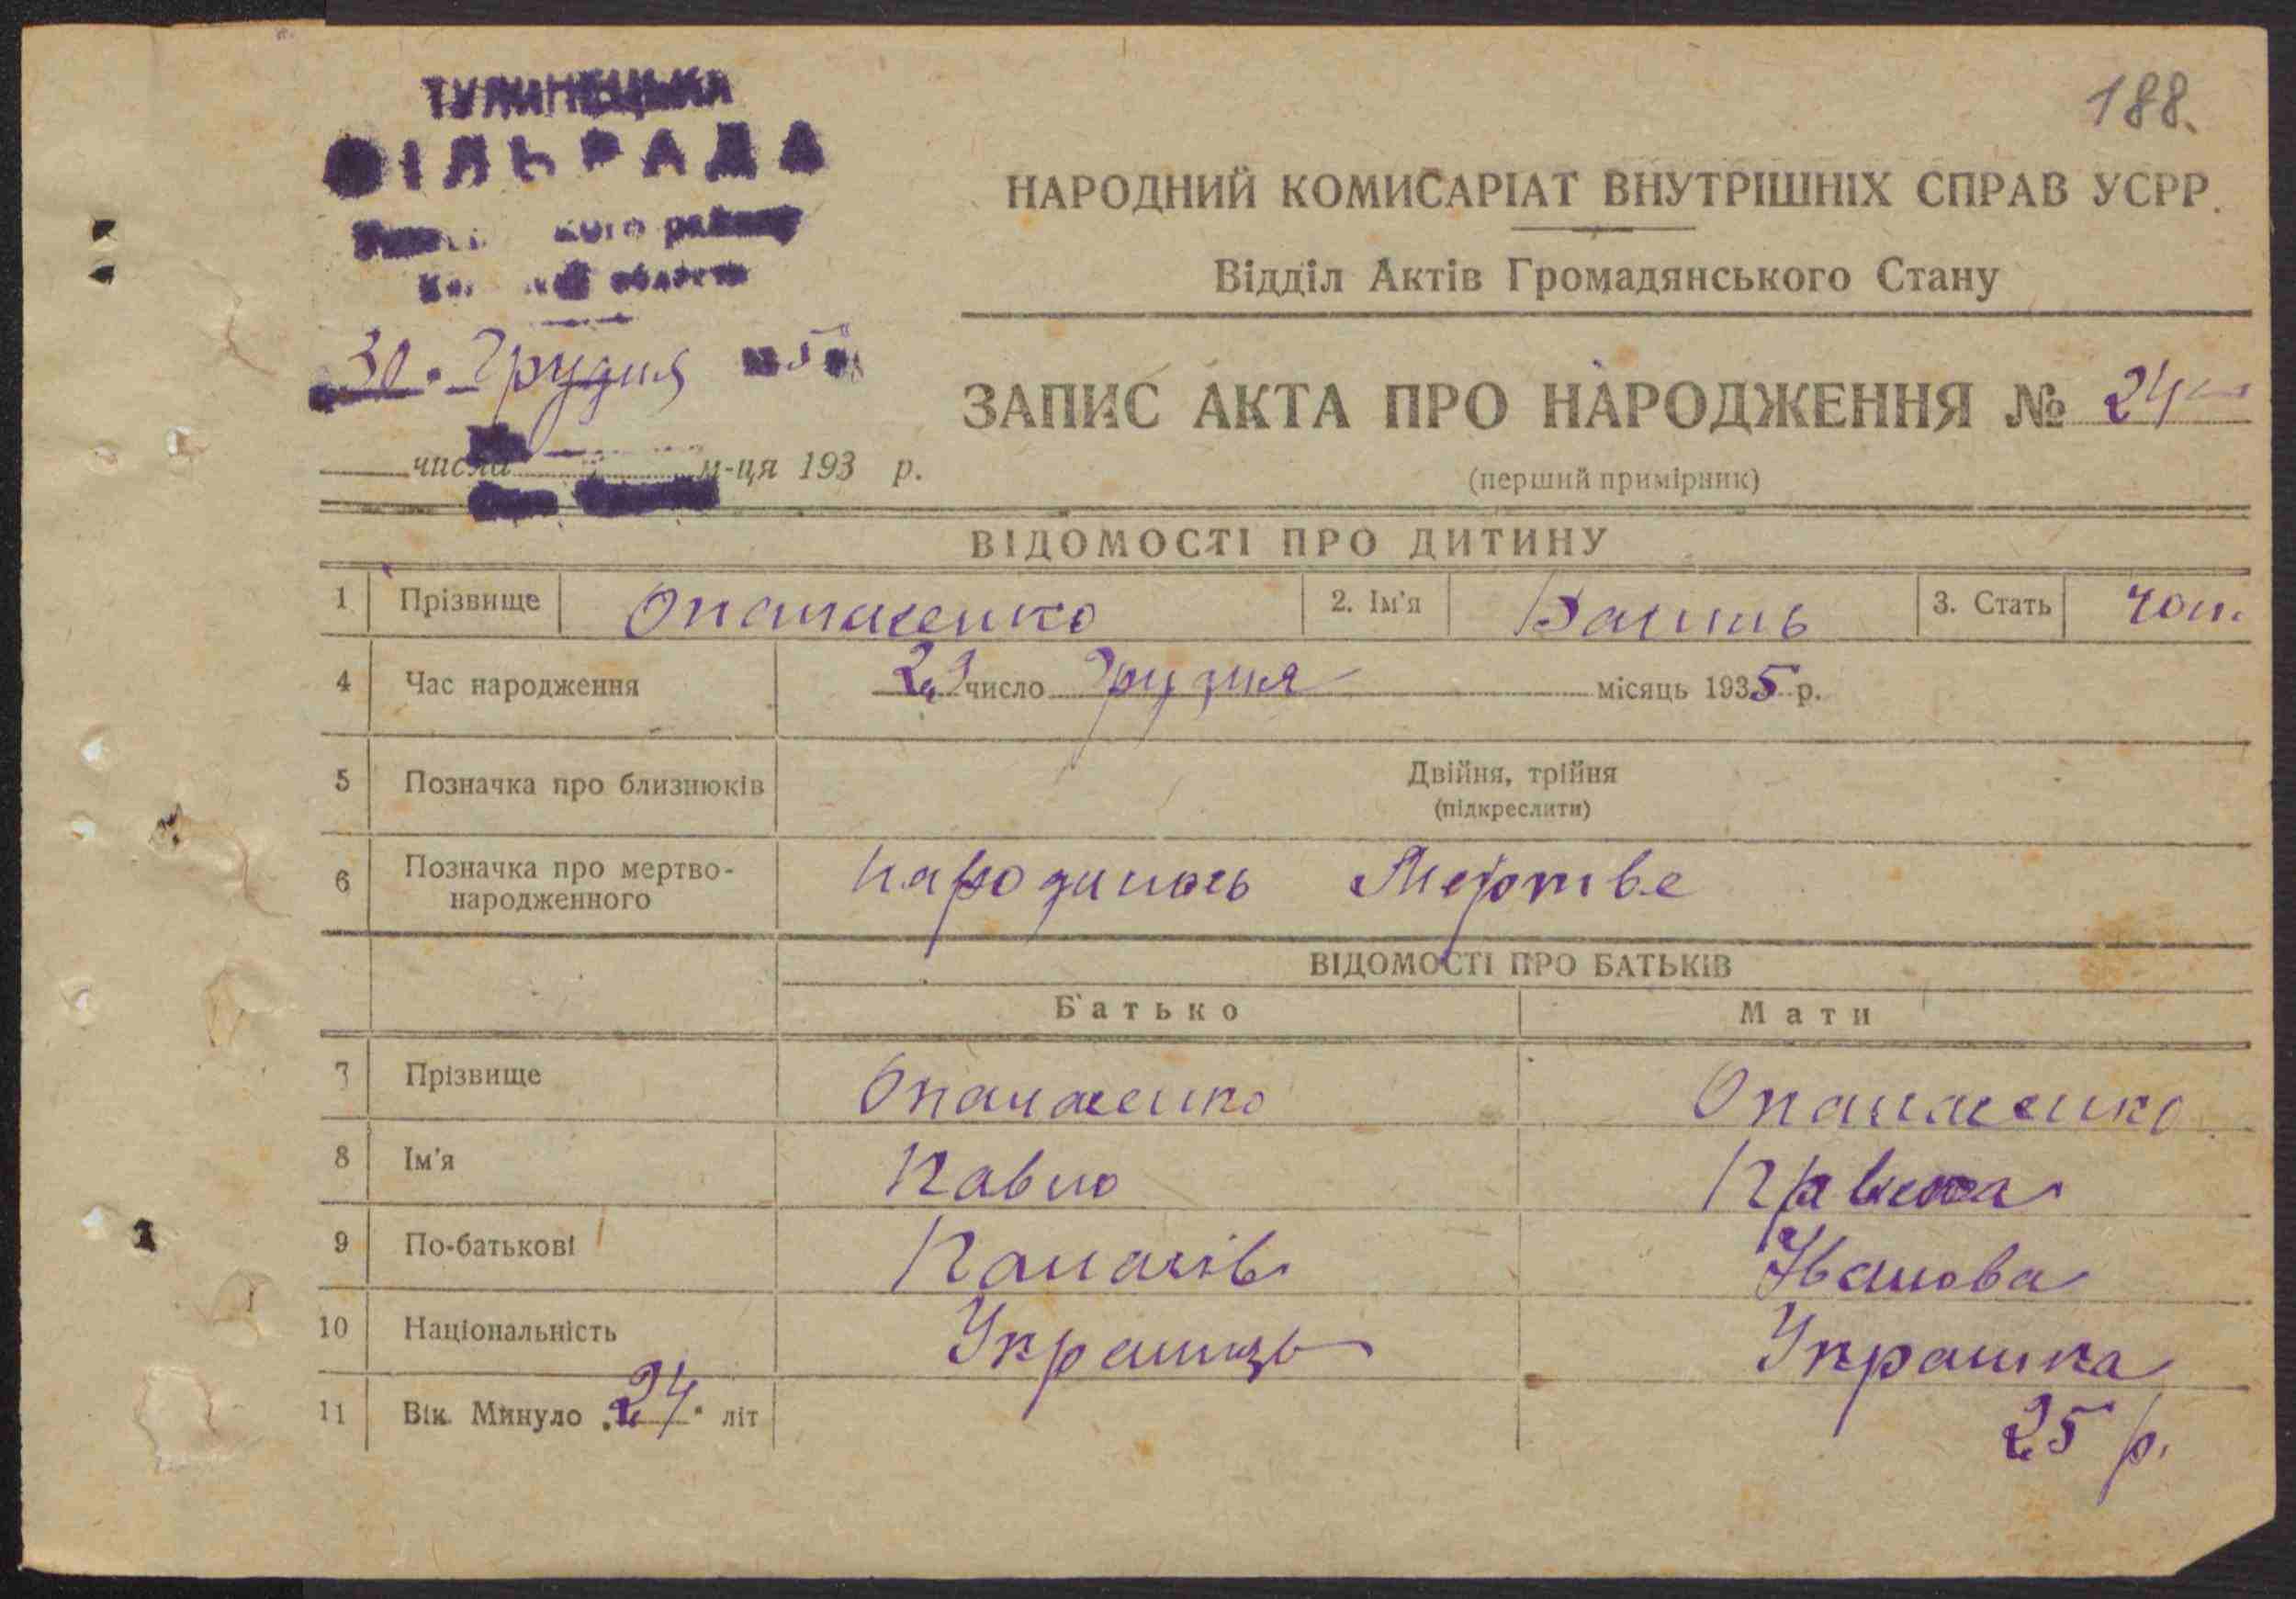 ТУЛИНЕЦЬКА
СІЛЬРАДА
кого району
області
30 Грудня 5
числа м-ця 193 р.
188.
НАРОДНИЙ КОМИСАРІАТ ВНУТРІШНІХ СПРАВ УСРР.
Відділ Актів Громадянського Стану
ЗАПИС АКТА ПРО НАРОДЖЕННЯ № 24
(перший примірник)
ВІДОМОСТІ ПРО ДИТИНУ
1 Прізвище Опанасенко 2. Ім'я 3. Стать чол.
4 Час народження 23 число Грудня місяць 1935 р.
5 Позначка про близнюків Двійня, трійня
(підкреслити)
6 Позначка про мертво-
народженного народилось Мертве
ВІДОМОСТІ ПРО БАТЬКІВ
Батько Мати
7 Прізвище Опанасенко Опанасенко
8 Ім'я Павло
9 По-батькові Панасів Іванова
10 Національність Українць Украінка
11 Вік. Минуло „24" літ 25 р.